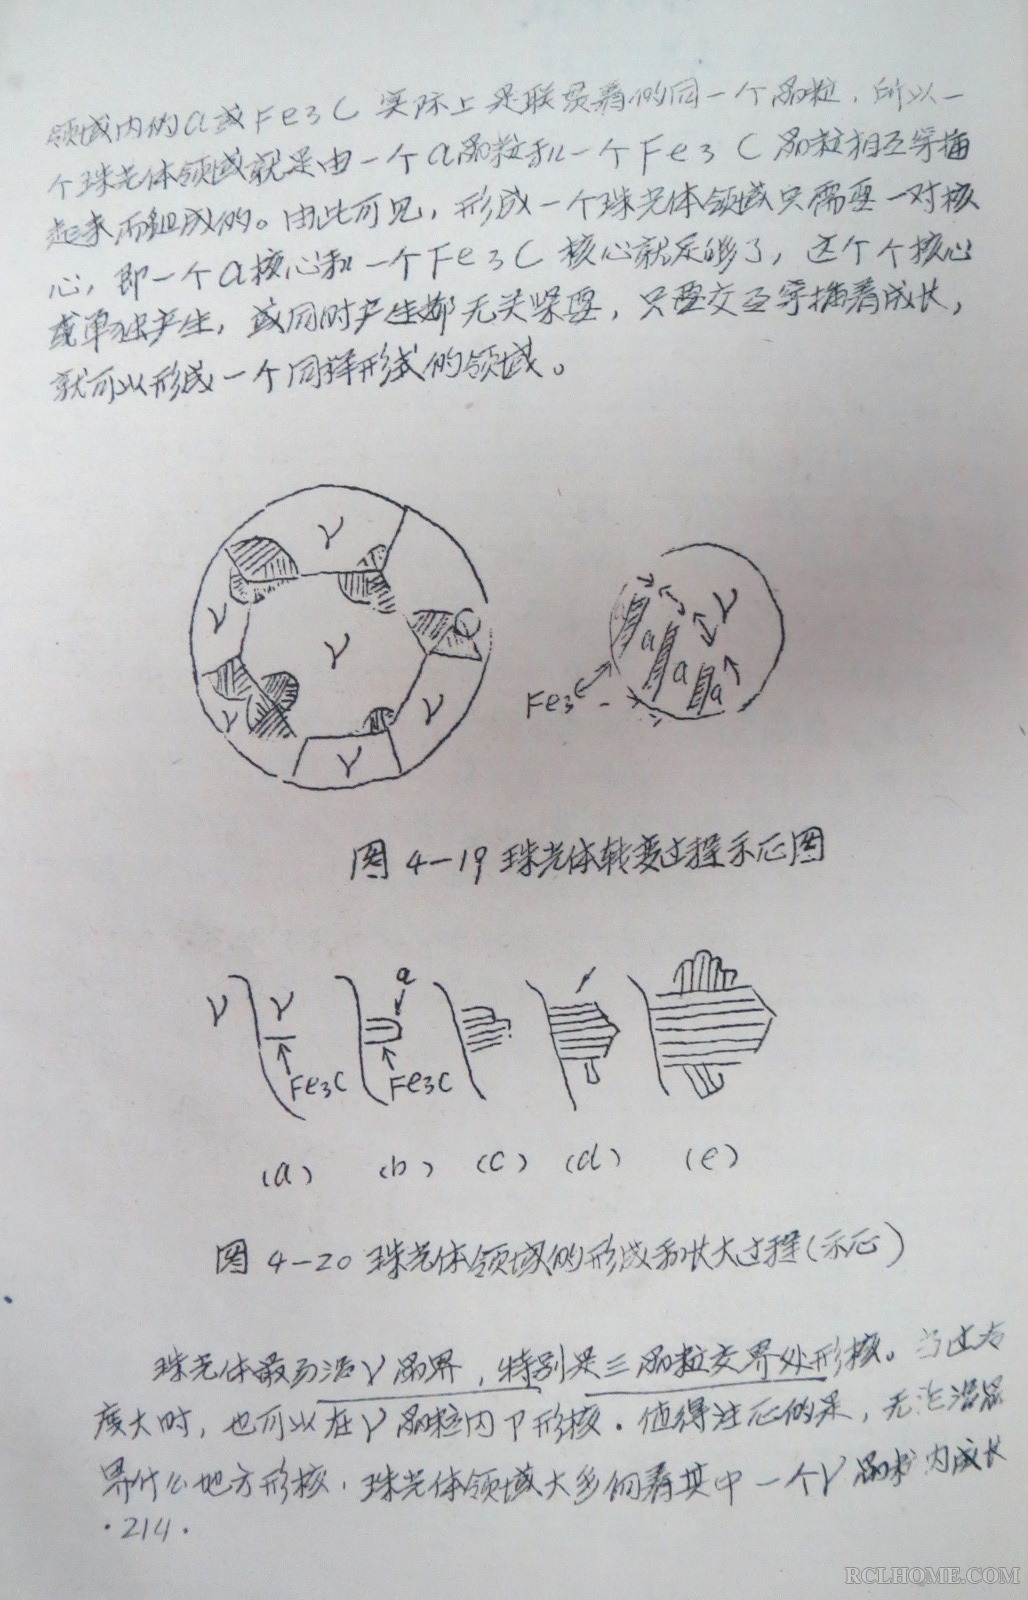 领域内的α或Fe3C实际上是联贯着的同一个晶粒，所以一
个珠光体领域就是由一个α晶粒和一个Fe3C晶粒相互穿插
起来而组成的。由此可见，形成一个珠光体领域只需要一对核
心，即一个α核心和一个Fe3C核心就足够了，这个个核心
或单独产生，或同时产生都无关紧要，只要交互穿插着成长，
就可以形成一个同样形式的领域。
γ
γ
γ
γ
γ
γ
C
γ
α
α
α
Fe3C
图4-19 珠光体转变过程示意图
γ γ
Fe3C
α
Fe3C
(a) (b) (c) (d) (e)
图4-20 珠光体领域的形成和长大过程(示意)
珠光体最易沿γ晶界，特别是三晶粒交界处形核。当过冷
度大时，也可以在γ晶粒内P形核。值得注意的是，无论沿晶
界什么地方形核，珠光体领域大多向着其中一个γ晶粒内成长
·214·
RCLHOME.COM